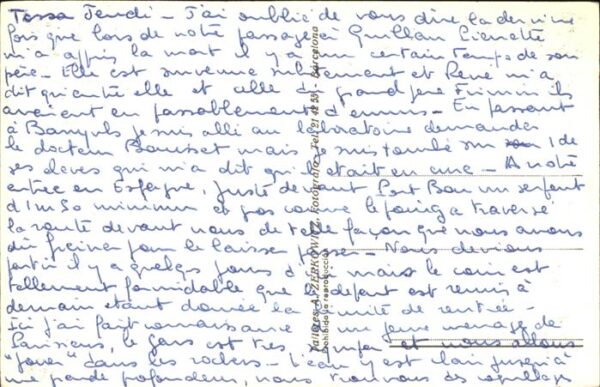 Tossa Jeudi - J'ai oublié de vous dire la dernière
fois que lors de notre passage ici Guillou Pierrette
m'a appris la mort il y a un certain temps de son
père - Elle est survenue subitement et René m'a
dit qu'entre elle et celle du grand père Firmin ils
avaient eu passablement d'ennuis - En passant
à Banyuls je suis allé au laboratoire demander
le docteur mais je suis tombé sur 1 de
ses élèves qui m'a dit qu'il était en cure - A notre
entrée en Espagne, juste devant Port Bou un serpent
d'1m50 minimum et gros comme le poing a traversé
la route devant nous de telle façon que nous avons
dû freiner pour le laisser passer - Nous devions
partir il y a quelques jours mais le coin est
tellement formidable que le départ est remis à
demain étant donné la de rentrée -
Ici j'ai fait connaissance un jeune ménage de
Parisiens, le gars est très et nous allons
"jouer" dans les rochers - L'eau y est clair jusqu'à
une grande profondeur, nous trouvons des
Talleres A. ZERKOWITZ. Fotografía. Tel. 21 Barcelona
Prohibida la reproducción